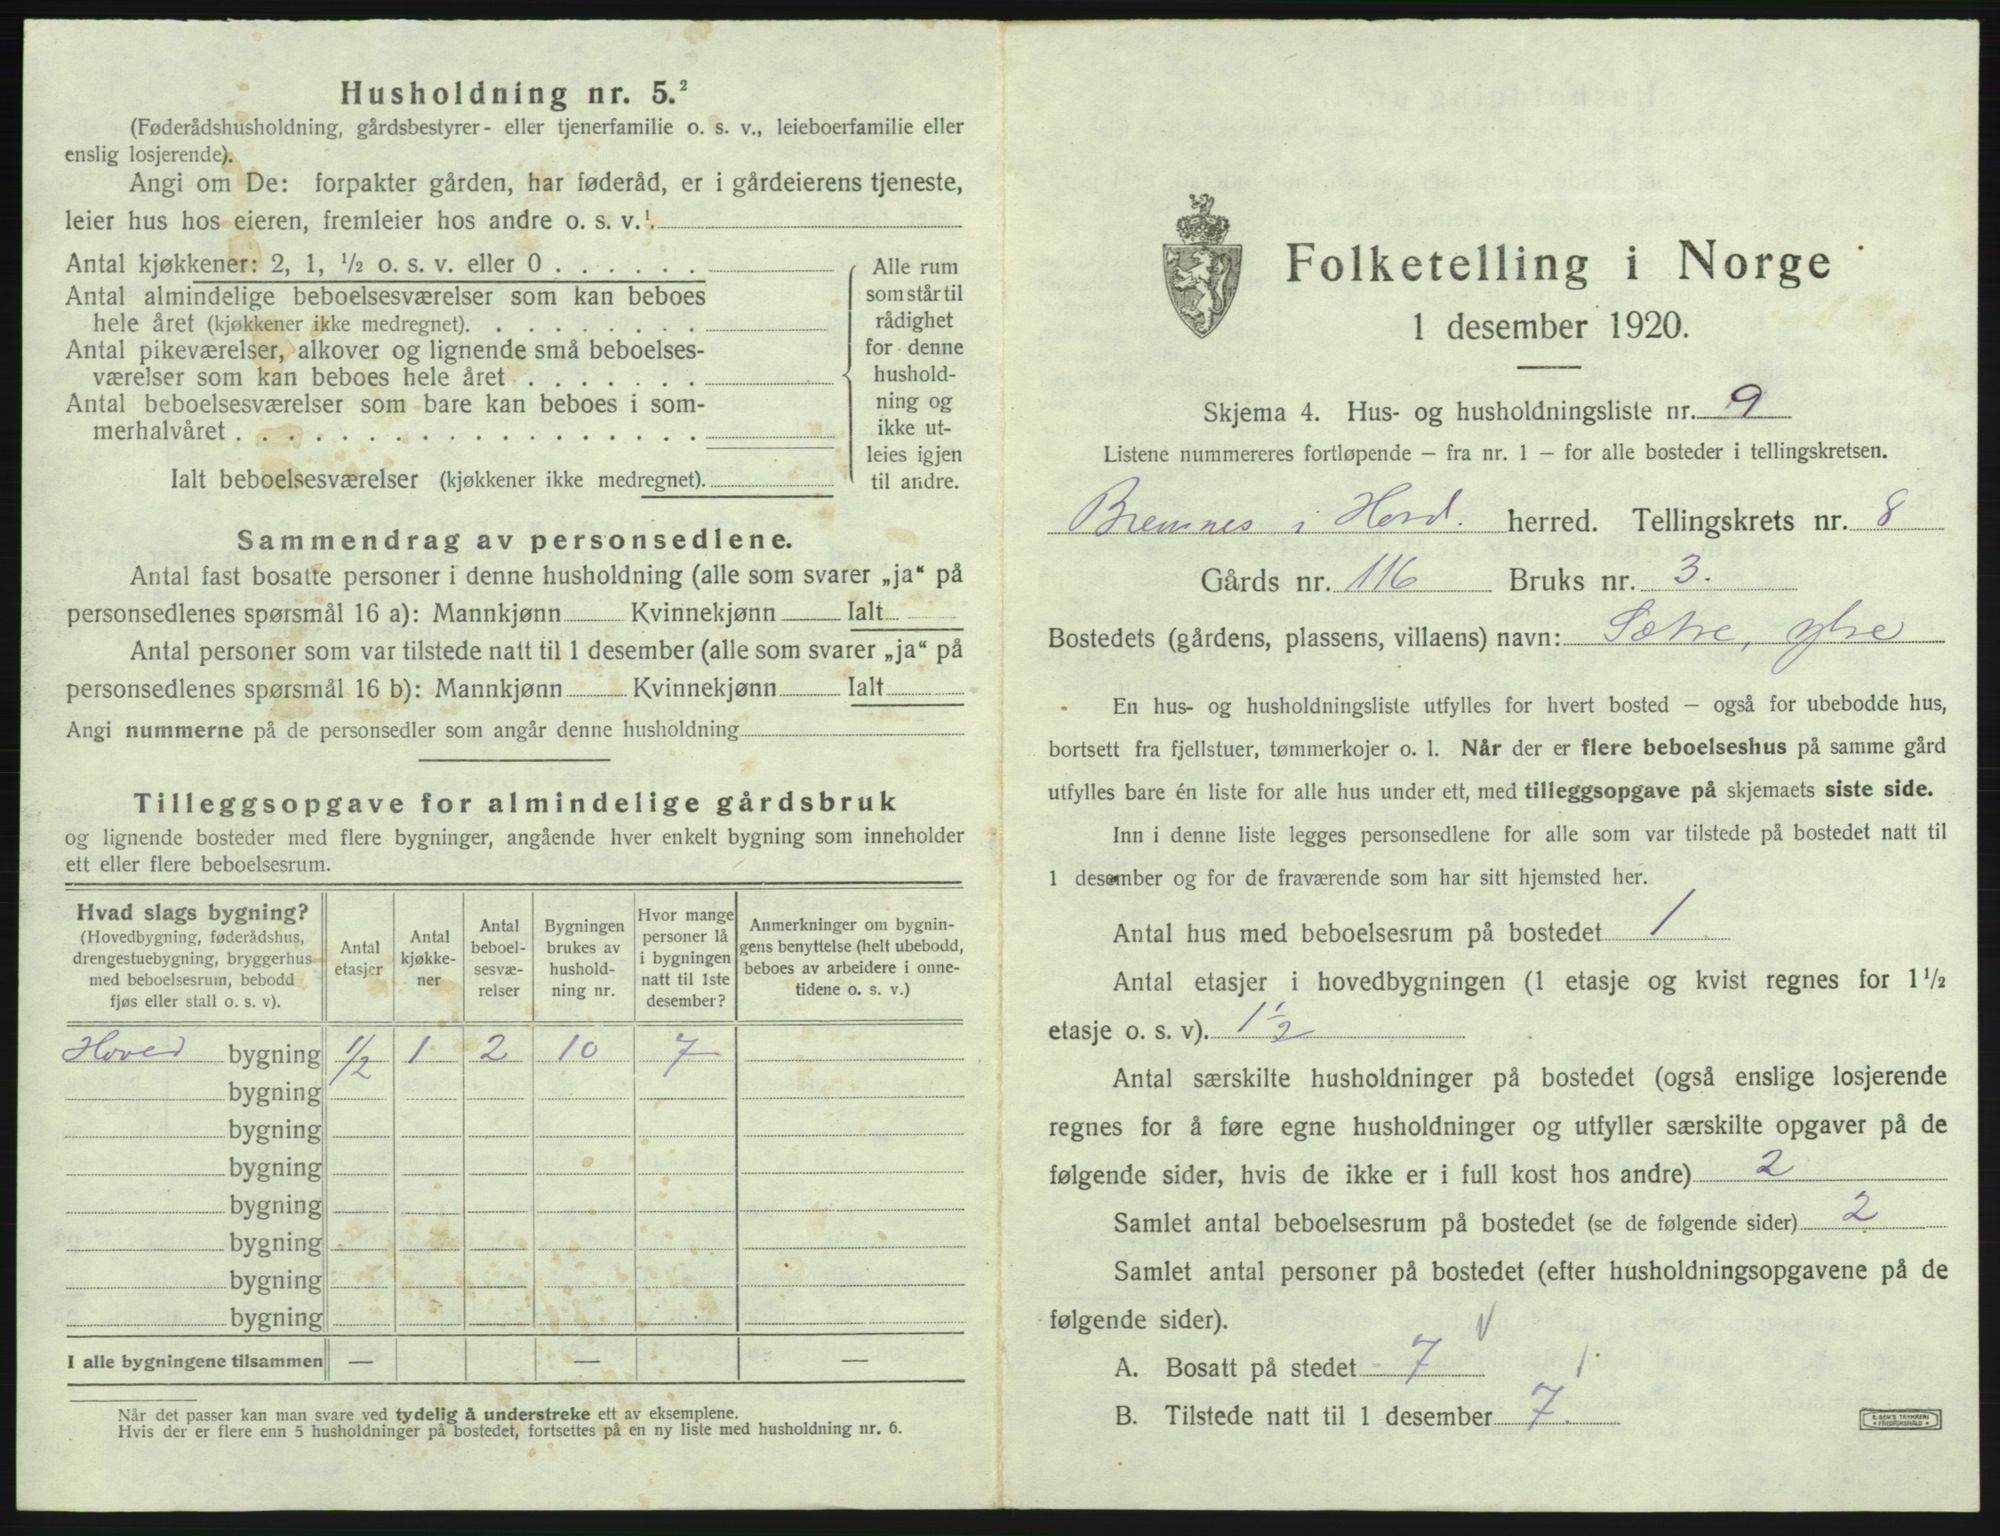 Husholdning nr. 5.²
(Føderådshusholdning, gårdsbestyrer- eller tjenerfamilie o. s. v., leieboerfamilie eller
enslig losjerende).
Angi om De: forpakter gården, har føderåd, er i gårdeierens tjeneste,
leier hus hos eieren, fremleier hos andre o. s. v.¹
Antal kjøkkener: 2, 1, ½ o. s. v. eller 0 . . . . . .
Antal almindelige beboelsesværelser som kan beboes
hele året (kjøkkener ikke medregnet). . . . . . . . .
Antal pikeværelser, alkover og lignende små beboelses-
værelser som kan beboes hele året . . . . . . .
Antal beboelsesværelser som bare kan beboes i som-
merhalvåret . . . . . . . . . . . . . . . . .
Ialt beboelsesværelser (kjøkkener ikke medregnet).
Alle rum
som står til
rådighet
for denne
hushold-
ning og
ikke ut-
leies igjen
til andre.
Sammendrag av personsedlene.
Antal fast bosatte personer i denne husholdning (alle som svarer „ja“ på
personsedlenes spørsmål 16 a): Mannkjønn Kvinnekjønn Ialt
Antal personer som var tilstede natt til 1 desember (alle som svarer „ja“ på
personsedlenes spørsmål 16 b): Mannkjønn Kvinnekjønn Ialt
Angi nummerne på de personsedler som angår denne husholdning
Tilleggsopgave for almindelige gårdsbruk
og lignende bosteder med flere bygninger, angående hver enkelt bygning som inneholder
ett eller flere beboelsesrum.
Hvad slags bygning?
(Hovedbygning, føderådshus,
drengestuebygning, bryggerhus
med beboelsesrum, bebodd
fjøs eller stall o. s. v).
Antal
etasjer
Antal
kjøkke-
ner
Antal
beboel-
sesvæ-
relser
Bygningen
brukes av
hushold-
ning nr.
Hvor mange
personer lå
i bygningen
natt til 1ste
desember?
Anmerkninger om bygnin-
gens benyttelse (helt ubebodd,
beboes av arbeidere i onne-
tidene o. s. v.)
Hoved bygning 1/2 1 2 10 7
bygning
bygning
bygning
bygning
bygning
bygning
bygning
I alle bygningene tilsammen — — —
Når det passer kan man svare ved tydelig å understreke ett av eksemplene.
Hvis der er flere enn 5 husholdninger på bostedet, fortsettes på en ny liste med husholdning nr. 6.
Folketelling i Norge
1 desember 1920.
Skjema 4. Hus- og husholdningsliste nr. 9
Listene nummereres fortløpende — fra nr. 1 — for alle bosteder i tellingskretsen.
Bremnes i Hord. herred. Tellingskrets nr. 8
Gårds nr. 116 Bruks nr. 3.
Bostedets (gårdens, plassens, villaens) navn: Sætre, ytre
En hus- og husholdningsliste utfylles for hvert bosted — også for ubebodde hus,
bortsett fra fjellstuer, tømmerkojer o. l. Når der er flere beboelseshus på samme gård
utfylles bare én liste for alle hus under ett, med tilleggsopgave på skjemaets siste side.
Inn i denne liste legges personsedlene for alle som var tilstede på bostedet natt til
1 desember og for de fraværende som har sitt hjemsted her.
Antal hus med beboelsesrum på bostedet 1
Antal etasjer i hovedbygningen (1 etasje og kvist regnes for 1½
etasje o. s. v). 1½
Antal særskilte husholdninger på bostedet (også enslige losjerende
regnes for å føre egne husholdninger og utfyller særskilte opgaver på de
følgende sider, hvis de ikke er i full kost hos andre) 2
Samlet antal beboelsesrum på bostedet (se de følgende sider) 2
Samlet antal personer på bostedet (efter husholdningsopgavene på de
følgende sider).
A. Bosatt på stedet 7
B. Tilstede natt til 1 desember 7.